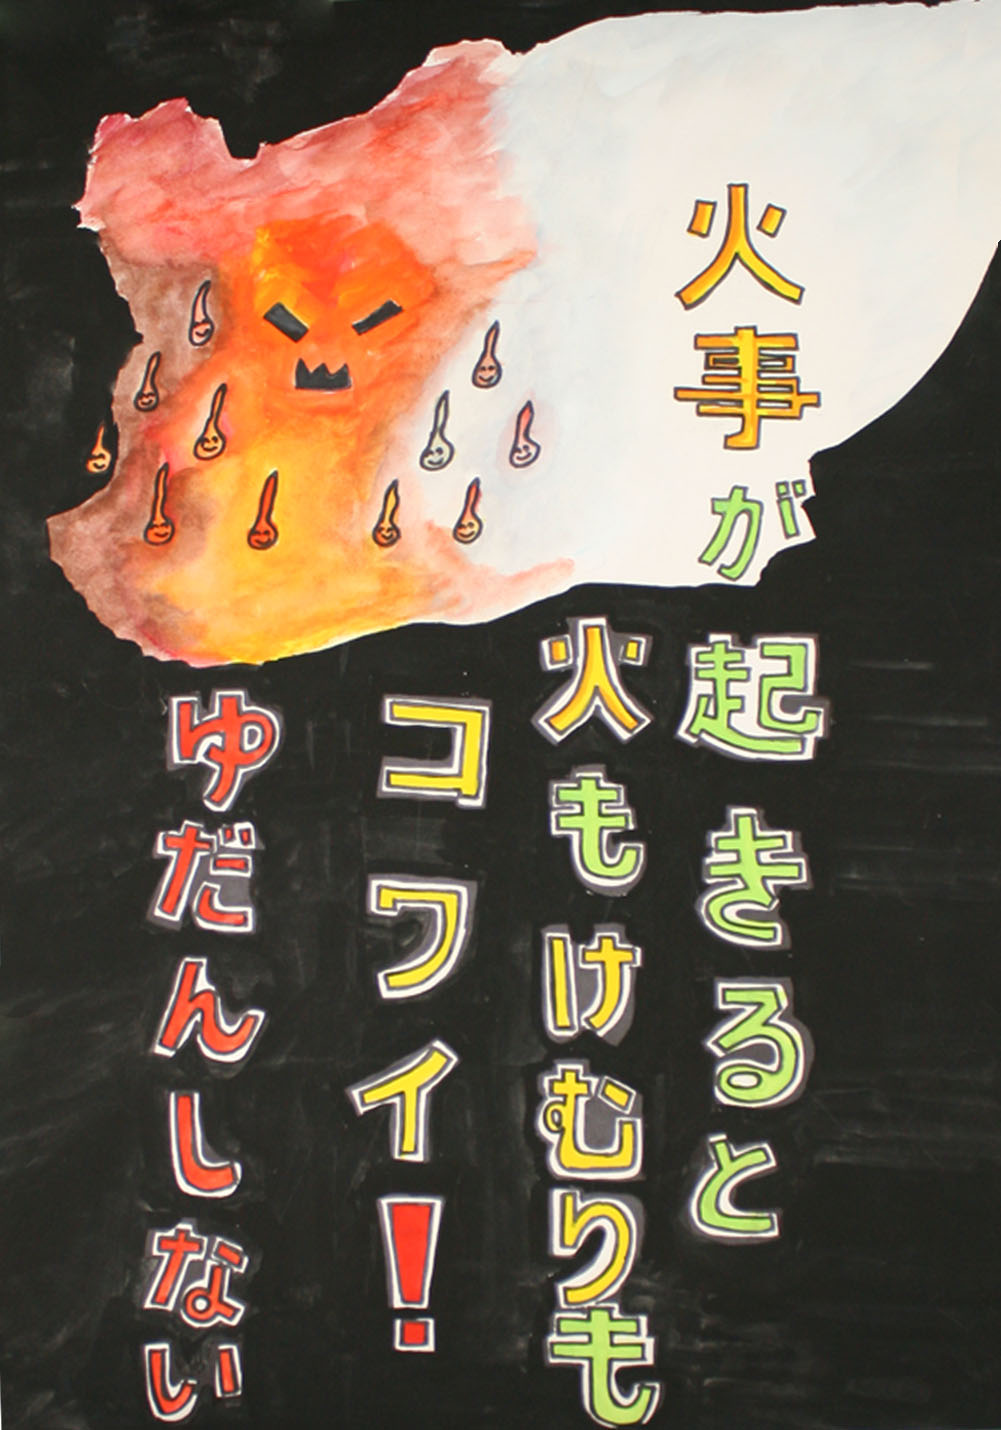 火事が起きると
火もけむりも
コワイ!
ゆだんしない